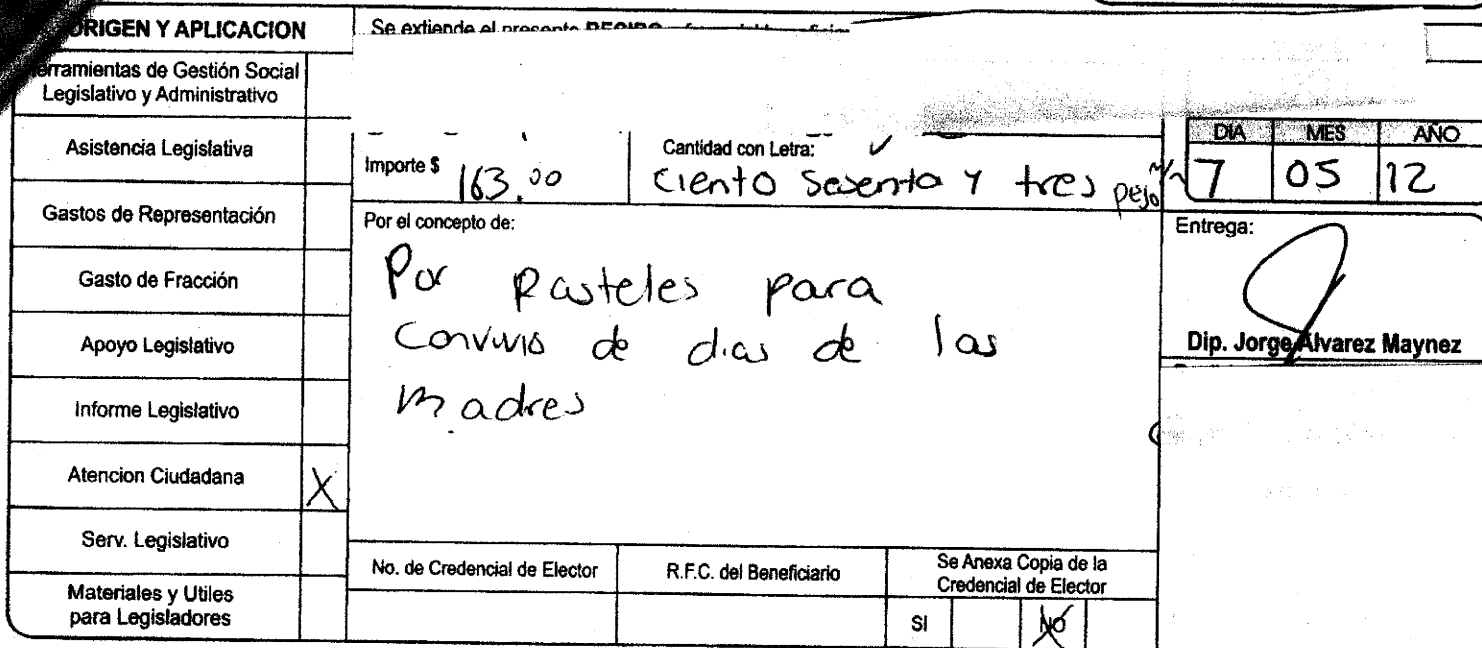 ORIGEN Y APLICACION
Se extiende el presente RECIBO
erramientas de Gestión Social
Legislativo y Administrativo
Asistencia Legislativa
Gastos de Representación
Gasto de Fracción
Apoyo Legislativo
Informe Legislativo
Atencion Ciudadana X
Serv. Legislativo
Materiales y Utiles
para Legisladores
Importe $ 163.00
Cantidad con Letra:
Ciento Sesenta y tres pejo m/n
DIA MES AÑO
7 05 12
Por el concepto de:
Por Pasteles para
Convivio de dias de las
madres
Entrega:
Dip. Jorge Álvarez Maynez
No. de Credencial de Elector
R.F.C. del Beneficiario
Se Anexa Copia de la
Credencial de Elector
SI NO